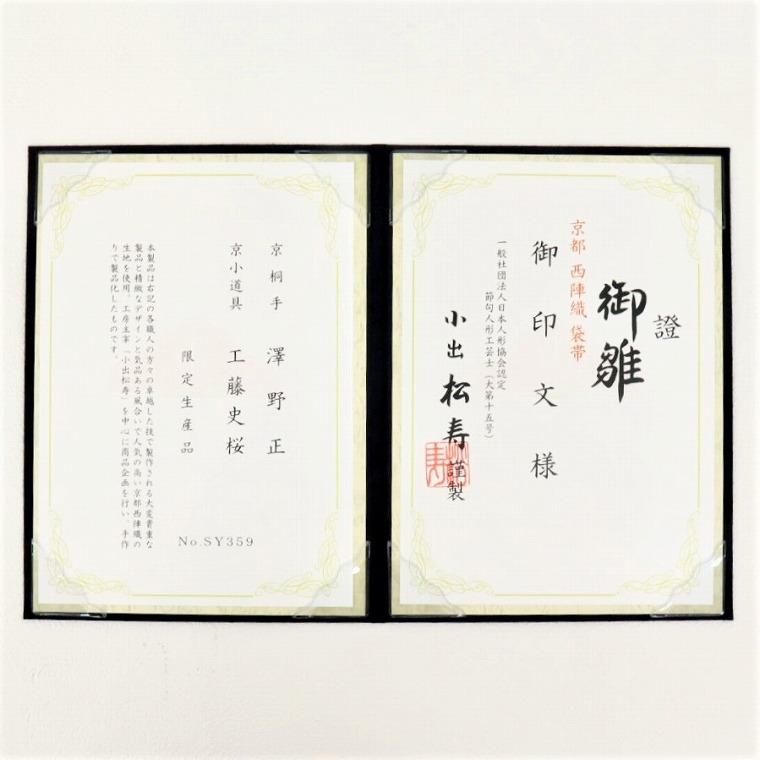 證
御雛
京都 西陣織 袋帯
御印文様
一般社団法人日本人形協会認定
節句人形工芸士(大第十五号)
小出松寿 謹製
京桐手 澤野正
京小道具 工藤史桜
限定生産品
本製品は右記の各職人の方々の卓越した技で製作される大変貴重な
製品と精緻なデザインと気品ある風合いで人気の高い京都西陣織の
生地を使用。工房主宰「小出松寿」を中心に商品企画を行い、手作
りで製品化したものです。
No.SY359